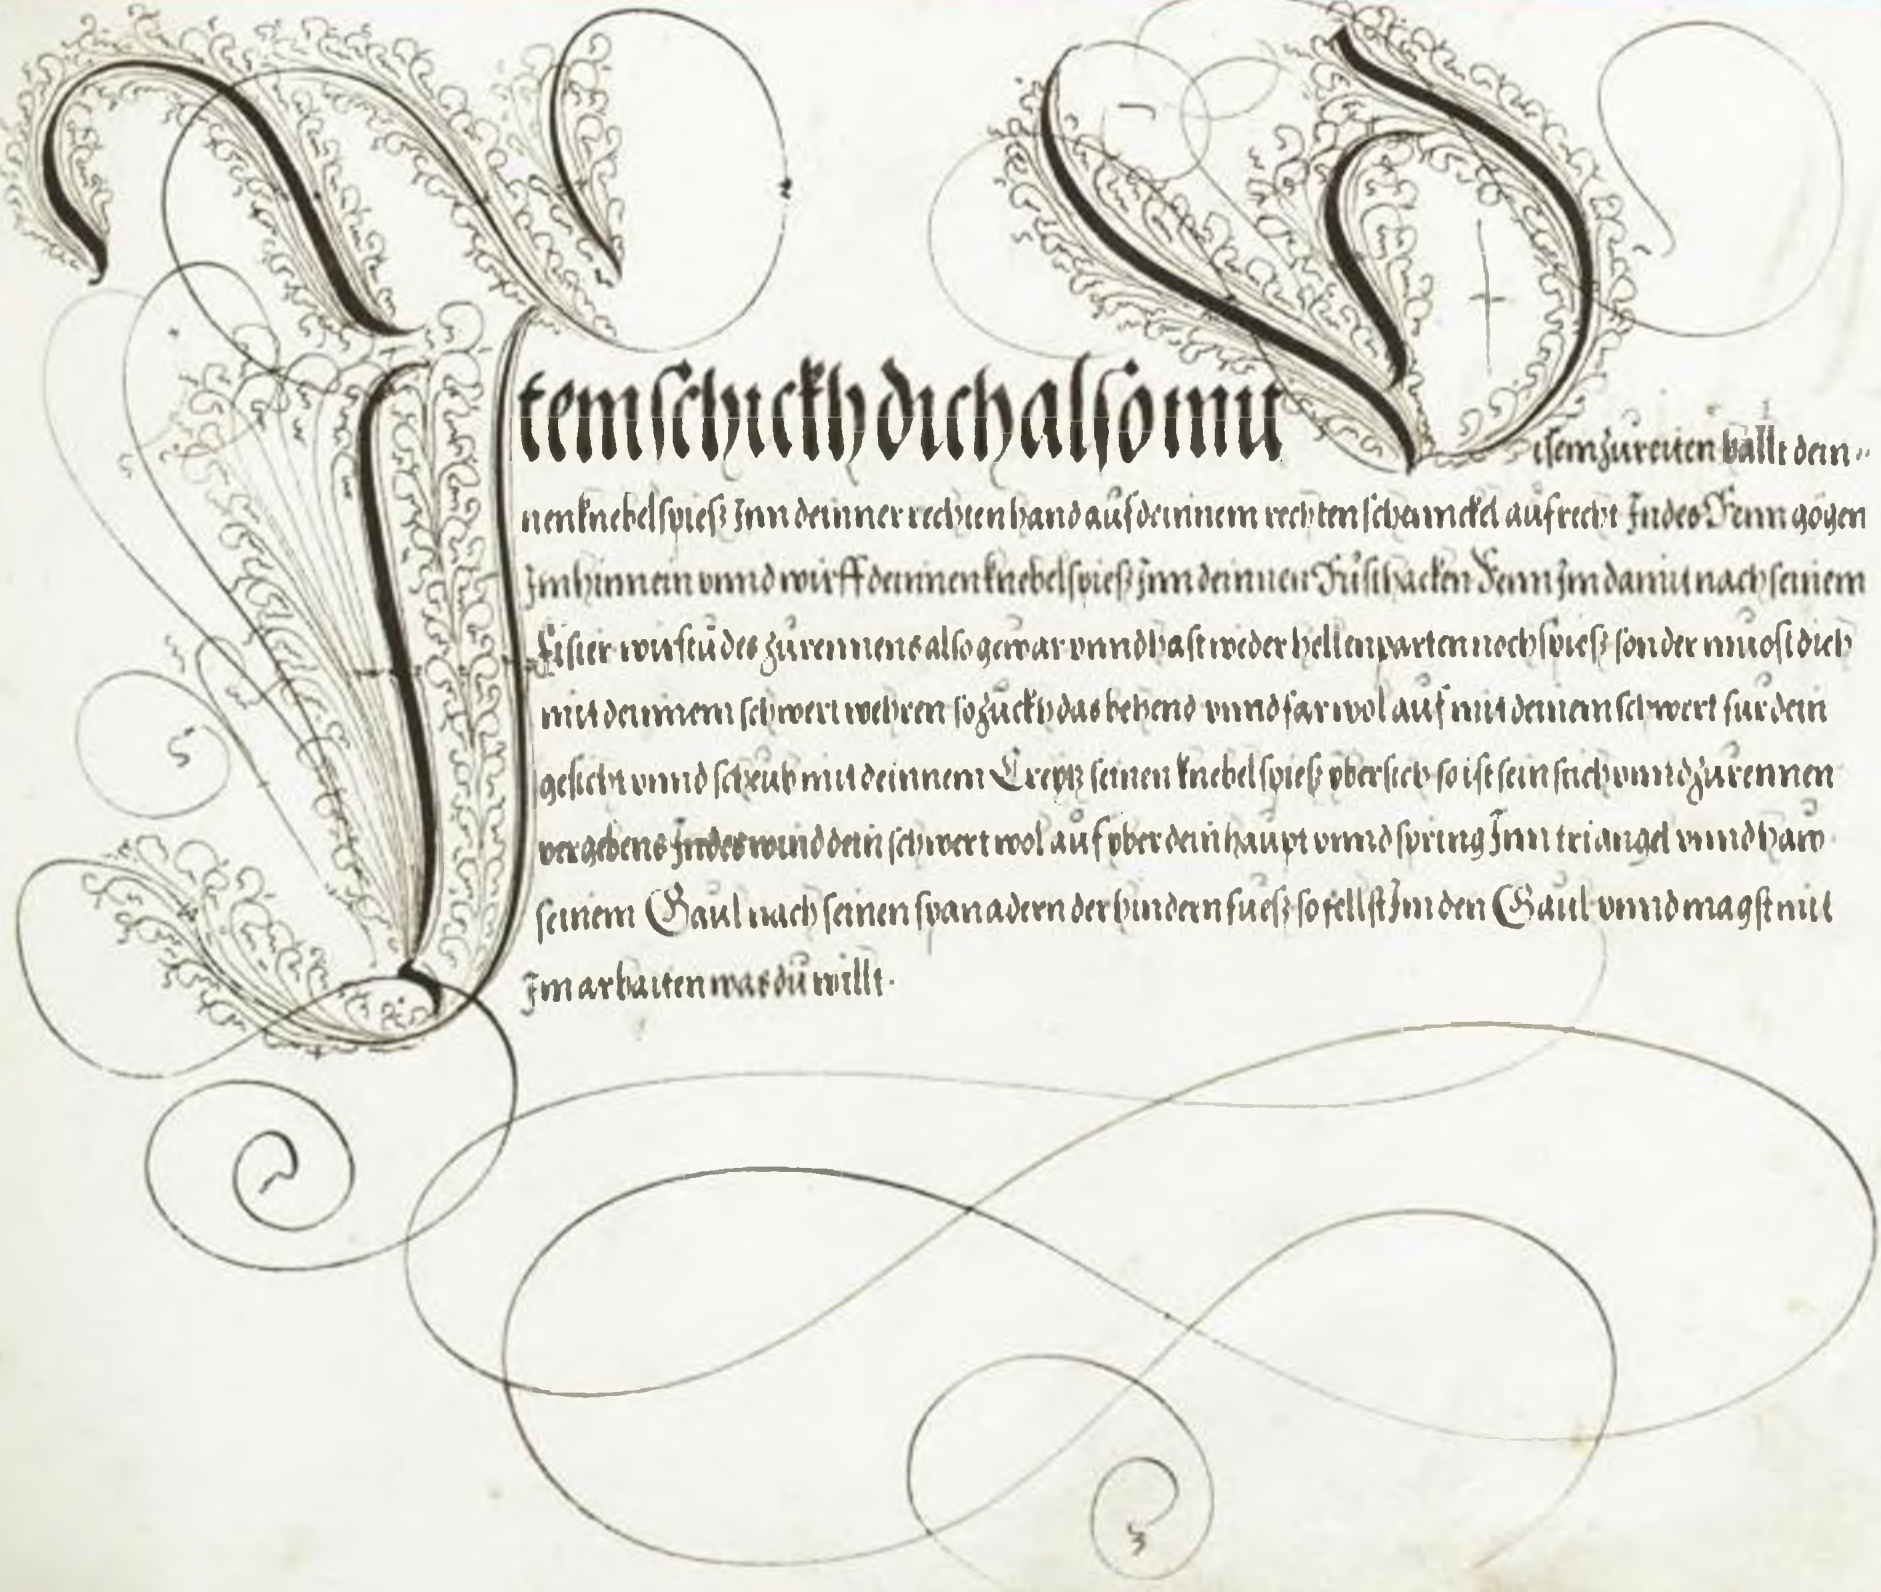 Item schickh dich also mit Disem zureiten hallt dein„
nen knebelspiess Inn deinner rechten hand auf deinnem rechten schennckel aufrecht Indes Renn gögen
Im hinnein vnnd wirff deinnen knebelspiess Inn deinnen Fürschacken Renn Im damit nach seinem
Fisier wirstu des zurennens also gewar vnnd hast weder hellenparten noch spiess sonder muost dich
mit deinnem schwert wehren so zuckh das behend vnnd far wol auf mit deinem schwert fur dein
gesicht vnnd scheub mit deinnem Creytz seinen knebelspiess vbersich so ist sein stich vnnd zurennen
vergebens Indes wind dein schwert wol auf vber dein haupt vnnd spring Inn triangel vnnd haw
seinem Gaul nach seinen spanadern der hindern fuess so fellst Im den Gaul vnnd magst mit
Im arbaiten was du willt.